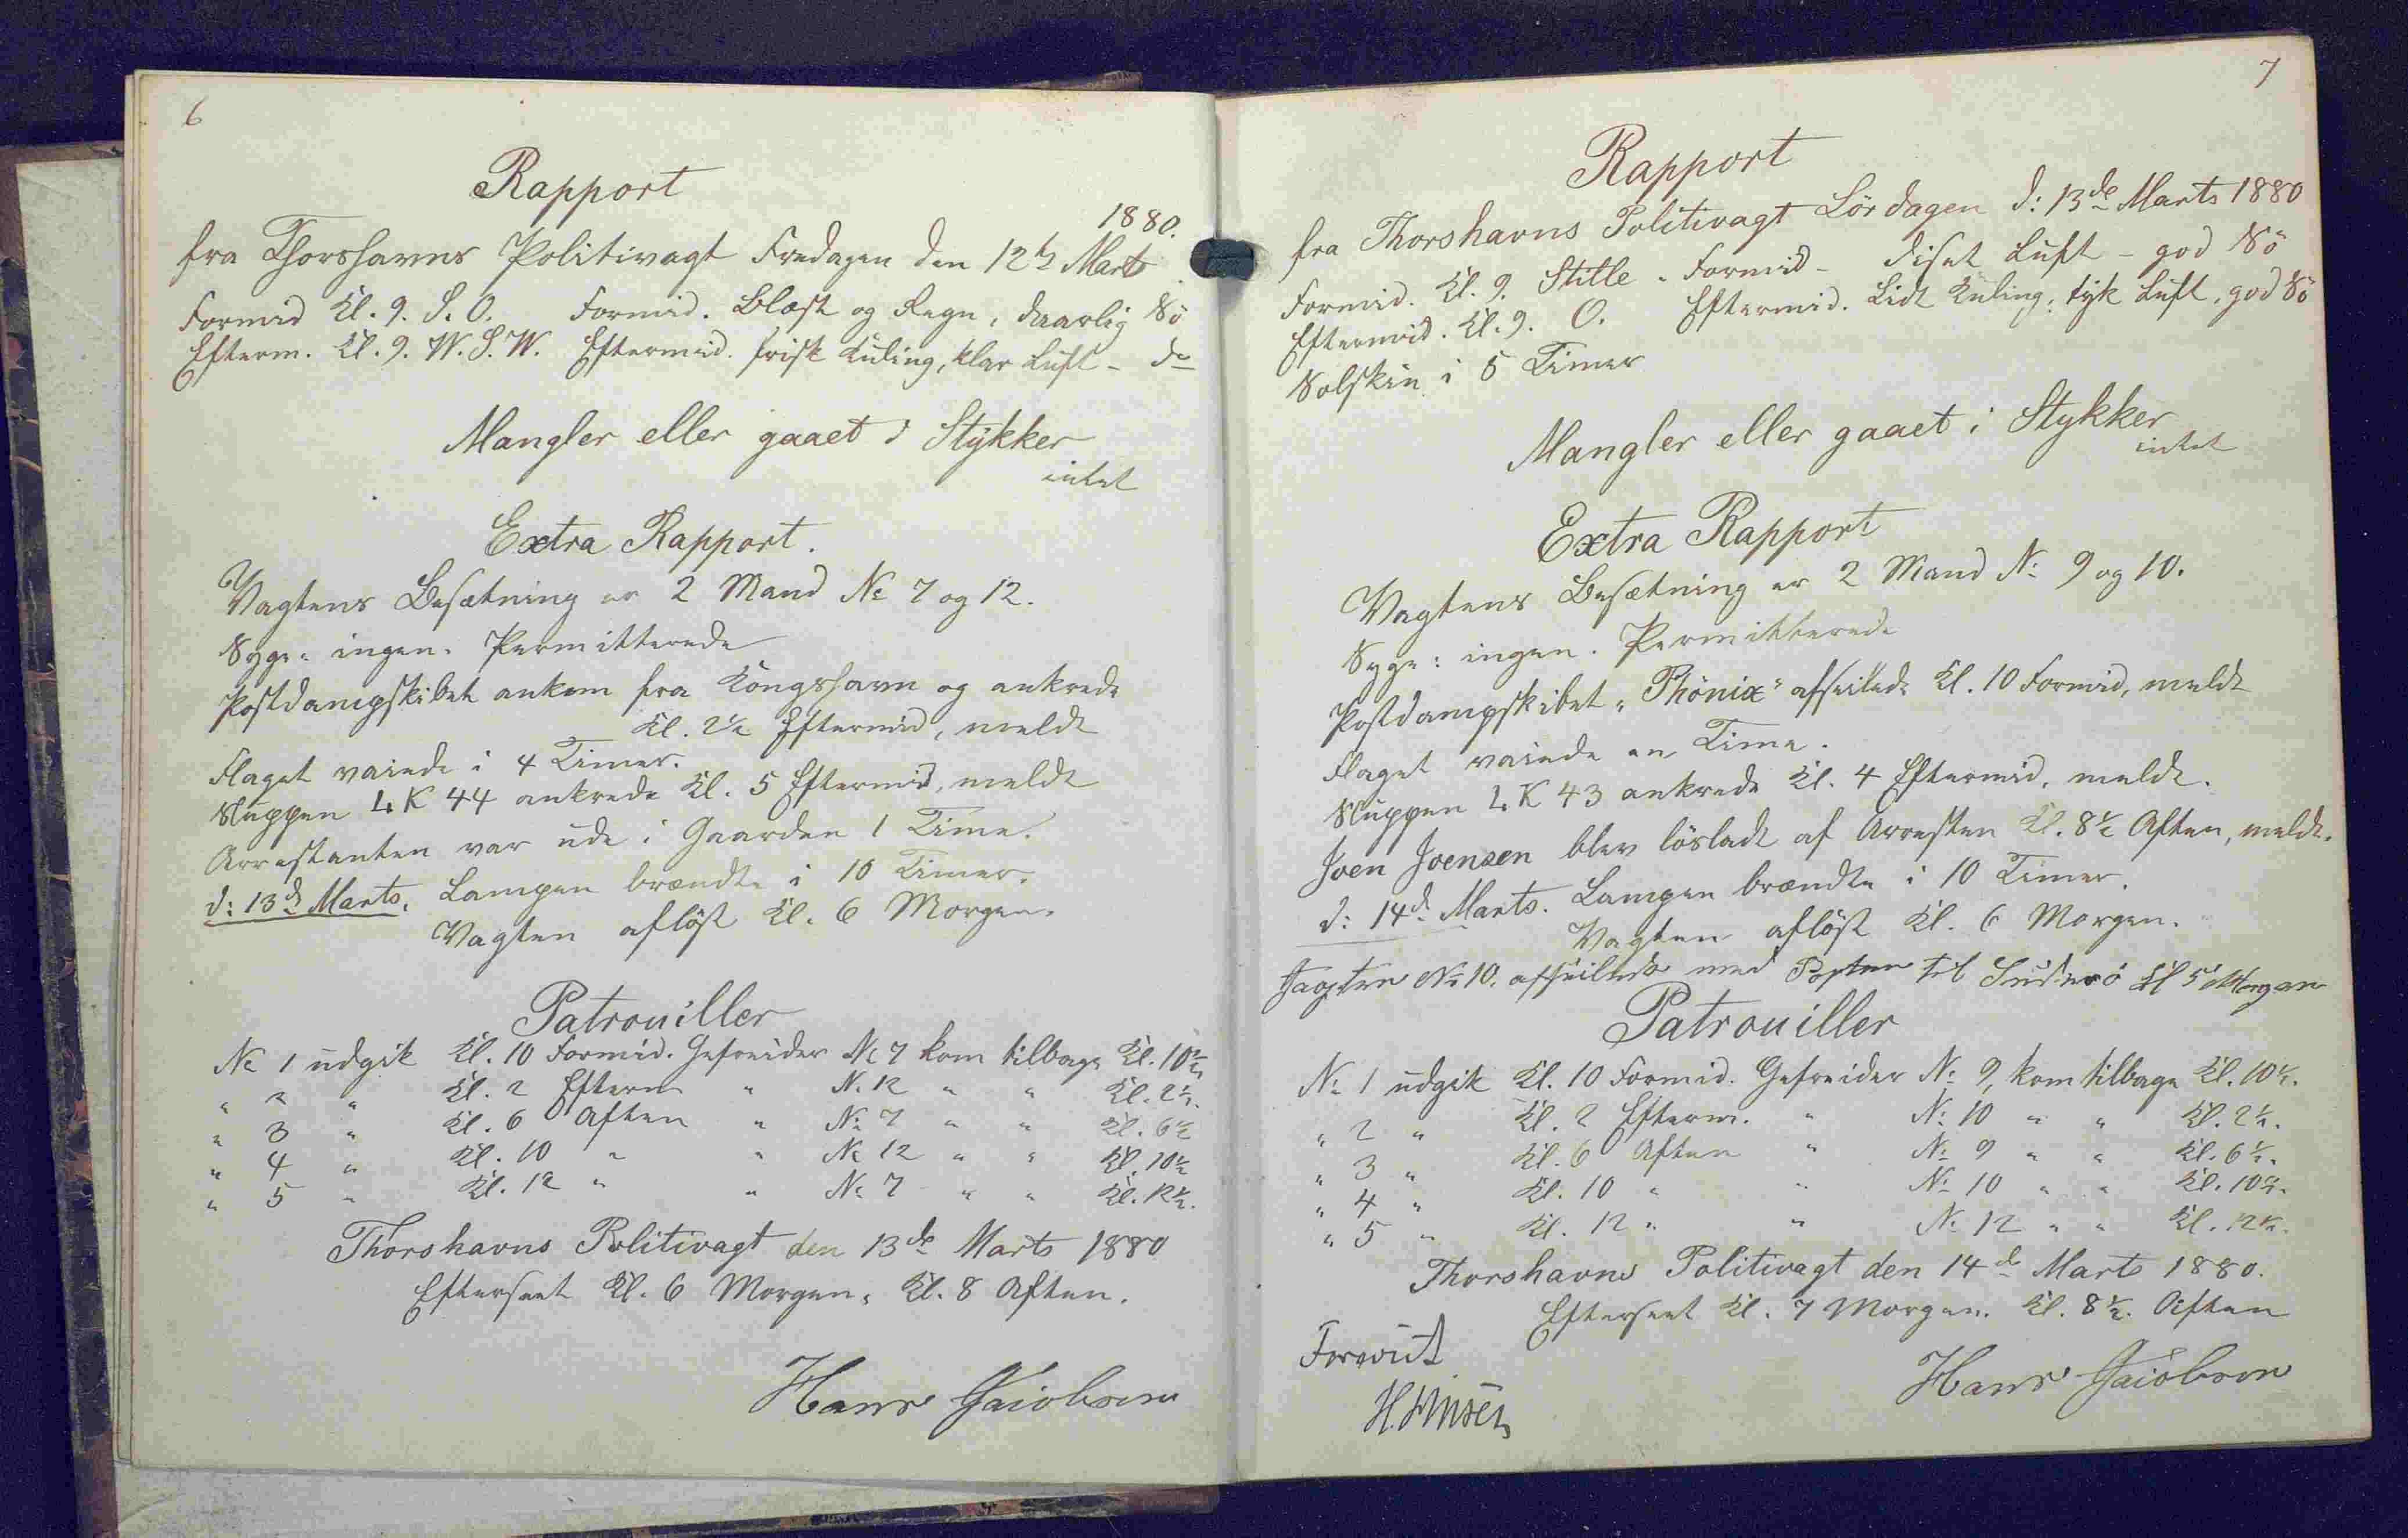 6
Rapport
1880.
fra Thorshavns Politivagt Fredagen den 12te Marts
Formid Kl. 9. S. O. Formid. Blæst og Regn, daarlig Sö
Efterm. Kl. 9. W. S. W. Eftermid. frisk Kuling, klar Luft - do
Mangler eller gaaet i Stykker
intet
Extra Rapport.
Vagtens Besætning er 2 Mand No 7 og 12.
Syge: ingen. Permitterede
Postdampskibet ankom fra Kongshavn og ankrede
Kl. 2½ Eftermid, meldt
Flaget vaiede i 4 Timer.
Sluppen LK 44 ankrede Kl. 5 Eftermid, meldt
Arrestanten var ude i Gaarden 1 Time.
d: 13de Marts. Lampen brændte i 10 Timer.
Vagten aflöst Kl. 6 Morgen.
Patrouiller
No 1 udgik Kl. 10 Formid. Gefreider No 7 kom tilbage Kl. 10½
" 2 " Kl. 2 Efterm " No 12 " " Kl. 2½.
" 3 " Kl. 6 Aften " No 7 " " Kl. 6½
" 4 " Kl. 10 " " No 12 " " Kl. 10½
" 5 " Kl. 12 " " No 7 " " Kl. 12½.
Thorshavns Politivagt den 13de Marts 1880
Efterseet Kl. 6 Morgen, Kl. 8 Aften.
Hans Jacobsen
7
Rapport
fra Thorshavns Politivagt Lördagen d: 13de Marts 1880
Formid. Kl. 9. Stille - Formid - diset Luft - god Sö
Eftermid. Kl. 9. O. Eftermid. Lidt Kuling, tyk Luft, god Sö
Solskin i 5 Timer
Mangler eller gaaet i Stykker
intet
Extra Rapport
Vagtens Besætning er 2 Mand No 9 og 10.
Syge: ingen. Permitterede
Postdampskibet "Phönix" afseilede Kl. 10 Formid, meldt
Flaget vaiede en Time.
Sluppen LK 43 ankrede Kl. 4 Eftermid, meldt.
Joen Joensen blev lösladt af Arresten Kl. 8½ Aften, meldt.
d: 14de Marts. Lampen brændte i 10 Timer.
Vagten aflöst Kl. 6 Morgen.
Jagten No 10. afseilede med Posten til Suderö Kl 5 Morgen
Patrouiller
No 1 udgik Kl. 10 Formid. Gefreider No 9, kom tilbage Kl. 10½.
" 2 " Kl. 2 Efterm. " No 10 " " Kl. 2½.
" 3 " Kl. 6 Aften " No 9 " " Kl. 6½.
" 4 " Kl. 10 " " No 10 " " Kl. 10½.
" 5 " Kl. 12 " " No 12 " " Kl. 12½.
Thorshavns Politivagt den 14de Marts 1880.
Efterseet Kl. 7 Morgen. Kl. 8½. Aften
Forevist
Hans Jacobsen